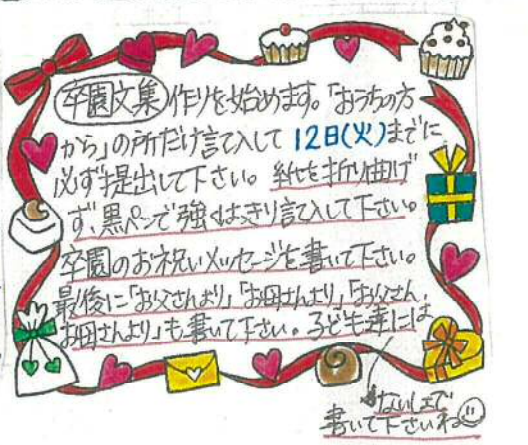 卒園文集作りを始めます。「おうちの方
から」の所だけ記入して12日(火)までに
必ず提出して下さい。紙を折り曲げ
ず、黒ペンで強くはっきり記入して下さい。
卒園のお祝いメッセージを書いて下さい。
最後に「お父さんより」「お母さんより」「お父さん、
お母さんより」も書いて下さい。子ども達には
ないしょで
書いて下さいね